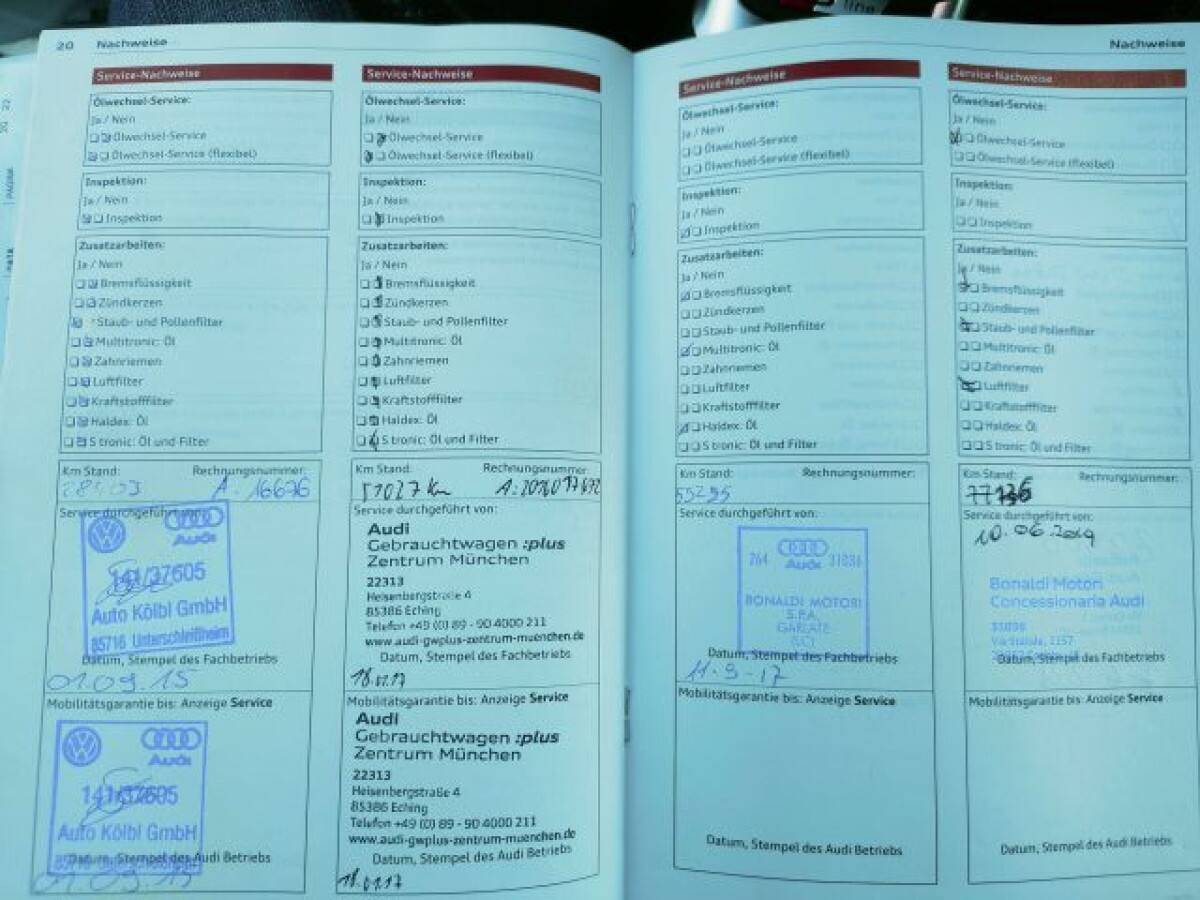 20 Nachweise
Service-Nachweise
Ölwechsel-Service:
Ja / Nein
Ölwechsel-Service
Ölwechsel-Service (flexibel)
Inspektion:
Ja / Nein
Inspektion
Zusatzarbeiten:
Ja / Nein
Bremsflüssigkeit
Zündkerzen
Staub- und Pollenfilter
Multitronic: Öl
Zahnriemen
Luftfilter
Kraftstofffilter
Haldex: Öl
S tronic: Öl und Filter
Km Stand: Rechnungsnummer:
A. 16676
Service durchgeführt von:
Audi
141/37605
Auto Kölbl GmbH
85716 Unterschleißheim
Datum, Stempel des Fachbetriebs
01.09.15
Mobilitätsgarantie bis: Anzeige Service
Audi
141/37605
Auto Kölbl GmbH
Datum, Stempel des Audi Betriebs
Service-Nachweise
Ölwechsel-Service:
Ja / Nein
Ölwechsel-Service
Ölwechsel-Service (flexibel)
Inspektion:
Ja / Nein
Inspektion
Zusatzarbeiten:
Ja / Nein
Bremsflüssigkeit
Zündkerzen
Staub- und Pollenfilter
Multitronic: Öl
Zahnriemen
Luftfilter
Kraftstofffilter
Haldex: Öl
S tronic: Öl und Filter
Km Stand: Rechnungsnummer:
51027 km
Service durchgeführt von:
Audi
Gebrauchtwagen :plus
Zentrum München
22313
Heisenbergstraße 4
85386 Eching
Telefon +49 (0) 89 - 90 4000 211
www.audi-gwplus-zentrum-muenchen.de
Datum, Stempel des Fachbetriebs
18.01.17
Mobilitätsgarantie bis: Anzeige Service
Audi
Gebrauchtwagen :plus
Zentrum München
22313
Heisenbergstraße 4
85386 Eching
Telefon +49 (0) 89 - 90 4000 211
www.audi-gwplus-zentrum-muenchen.de
Datum, Stempel des Audi Betriebs
18.01.17
Nachweise
Service-Nachweise
Ölwechsel-Service:
Ja / Nein
Ölwechsel-Service
Ölwechsel-Service (flexibel)
Inspektion:
Ja / Nein
Inspektion
Zusatzarbeiten:
Ja / Nein
Bremsflüssigkeit
Zündkerzen
Staub- und Pollenfilter
Multitronic: Öl
Zahnriemen
Luftfilter
Kraftstofffilter
Haldex: Öl
S tronic: Öl und Filter
Km Stand: Rechnungsnummer:
55255
Service durchgeführt von:
264 Audi 31038
BONALDI MOTORI
S.P.A.
GARLATE
Datum, Stempel des Fachbetriebs
11-9-17
Mobilitätsgarantie bis: Anzeige Service
Datum, Stempel des Audi Betriebs
Service-Nachweise
Ölwechsel-Service:
Ja / Nein
Ölwechsel-Service
Ölwechsel-Service (flexibel)
Inspektion:
Ja / Nein
Inspektion
Zusatzarbeiten:
Ja / Nein
Bremsflüssigkeit
Zündkerzen
Staub- und Pollenfilter
Multitronic: Öl
Zahnriemen
Luftfilter
Kraftstofffilter
Haldex: Öl
S tronic: Öl und Filter
Km Stand: Rechnungsnummer:
Service durchgeführt von:
10.06.2019
Bonaldi Motori
Concessionaria Audi
Datum, Stempel des Fachbetriebs
Mobilitätsgarantie bis: Anzeige Service
Datum, Stempel des Audi Betriebs